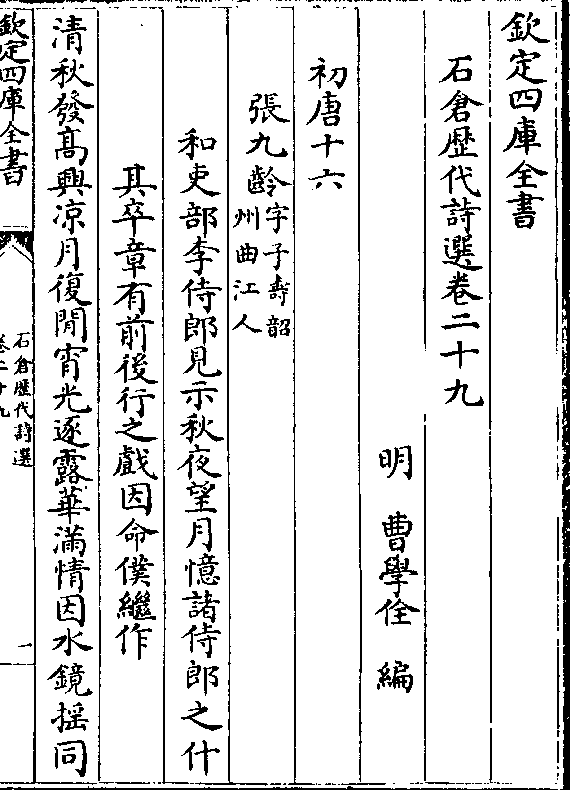 欽定四庫全書
石倉歴代詩選卷二十九
明 曹學佺 編
初唐十六
張九齡字子壽韶州曲江人
和吏部李侍郎見示秋夜望月憶諸侍郎之什
其卒章有前後行之戲因命僕繼作
清秋發髙興凉月復閒宵光逐露華滿情因水鏡揺同
欽定四庫全書
石倉歴代詩選
卷二十九
一